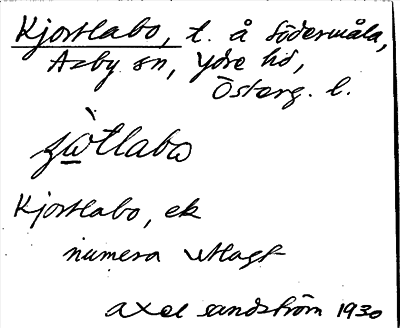 Kjortlabo, t. å Södermåla,
Asby sn, Ydre hd,
Österg. l.
Kjortlabo, ek
numera utlagt
Axel Sandström 1930